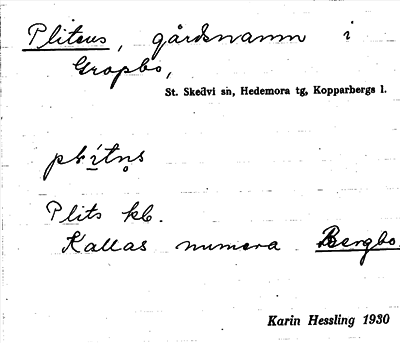 Plitens, gårdsnamn i
Gropbo,
St. Skedvi sn, Hedemora tg, Kopparbergs l.
Plits kb.
Kallas numera Bergbo.
Karin Hessling 1930